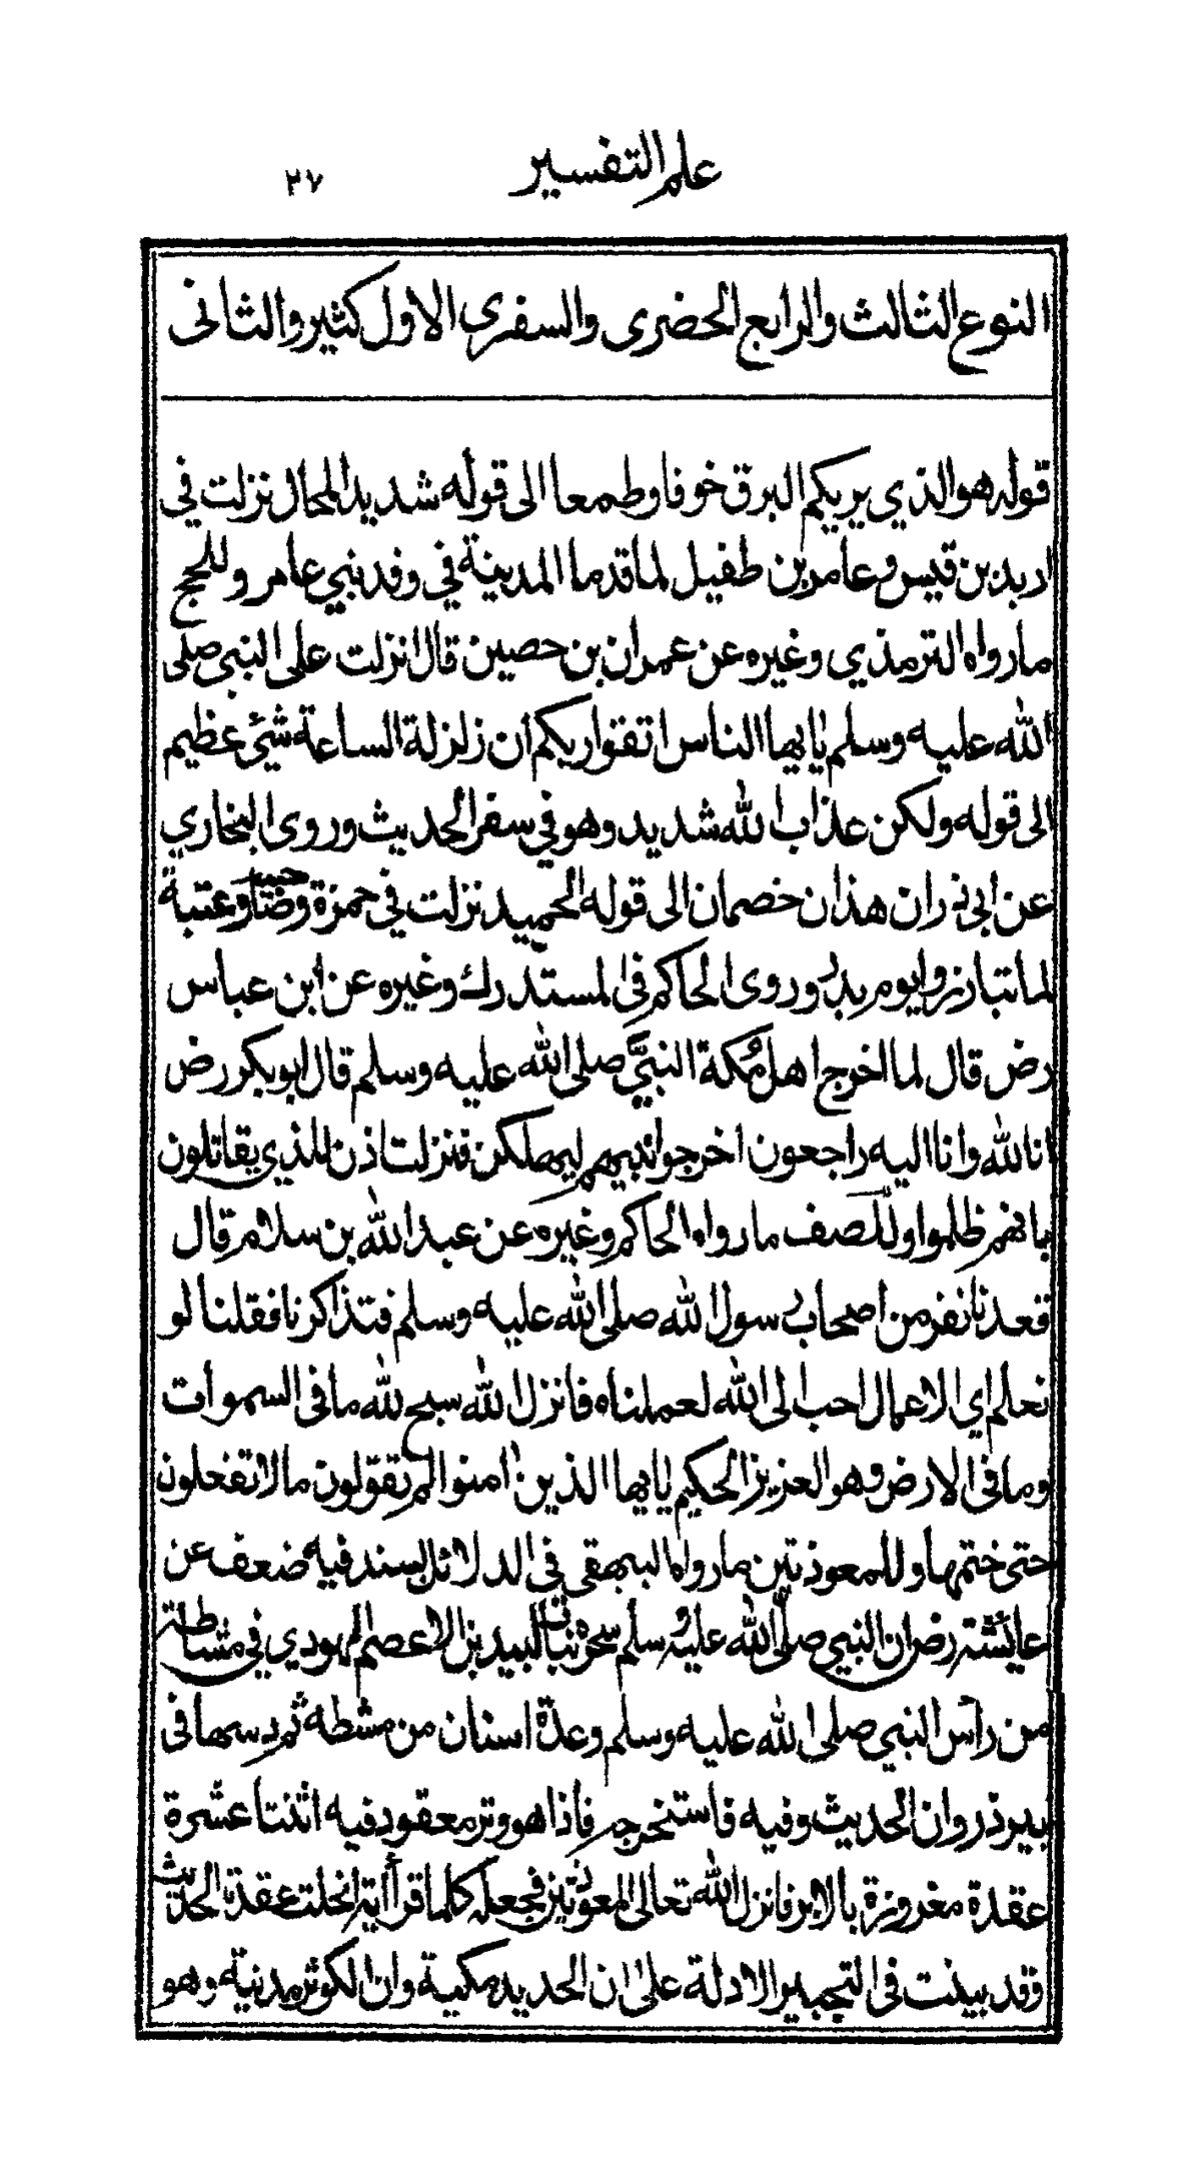 علم التفسير
٢٧
النوع الثالث والرابع الحضرى والسفرى الاول كثير والثانى
قوله هو الذي يريكم البرق خوفا وطمعا الى قوله شديد المحال نزلت في
اربد بن قيس وعامر بن طفيل لما قدما المدينة في وفد بني عامر وللحج
ما رواه الترمذي وغيره عن عمران بن حصين قال انزلت على النبي صلى
الله عليه وسلم يايها الناس اتقوا ربكم ان زلزلة الساعة شئ عظيم
الى قوله ولكن عذاب الله شديد وهو في سفر الحديث وروى البخاري
عن ابى ذر ان هذان خصمان الى قوله الحميد نزلت في حمزة وصاحبيه وعتبة
لما تبارزوا يوم بدر وروى الحاكم فى المستدرك وغيره عن ابن عباس
رض قال لما اخرج اهل مكة النبي صلى الله عليه وسلم قال ابو بكر رض
انا لله وانا اليه راجعون اخرجوا نبيهم ليهلكن فنزلت اذن للذي يقاتلون
بانهم ظلموا وللصف ما رواه الحاكم وغيره عن عبد الله بن سلام قال
قعدنا نفر من اصحاب رسول الله صلى الله عليه وسلم فتذاكرنا فقلنا لو
نعلم اي الاعمال احب الى الله لعملناه فانزل الله سبح لله ما فى السموات
وما فى الارض وهو العزيز الحكيم يايها الذين امنوا لم تقولون ما لا تفعلون
حتى ختمها وللمعوذتين ما رواه البيهقي فى الدلائل بسند فيه ضعف عن
عايشة رض ان النبي صلى الله عليه وسلم سحره لبيد بن الاعصم اليهودي في مشاطة
من رأس النبي صلى الله عليه وسلم وعدة اسنان من مشطه ثم دسها فى
بير ذروان الحديث وفيه فاستخرجه فاذا هو وتر معقود فيه اثنتا عشرة
عقدة مغروزة بالابر فانزل الله تعالى المعوذتين فجعل كلما قرأ اية انحلت عقدة الحديث
وقد بينت فى التحبير الادلة على ان الحديد مكية وان الكوثر مدنية وهو